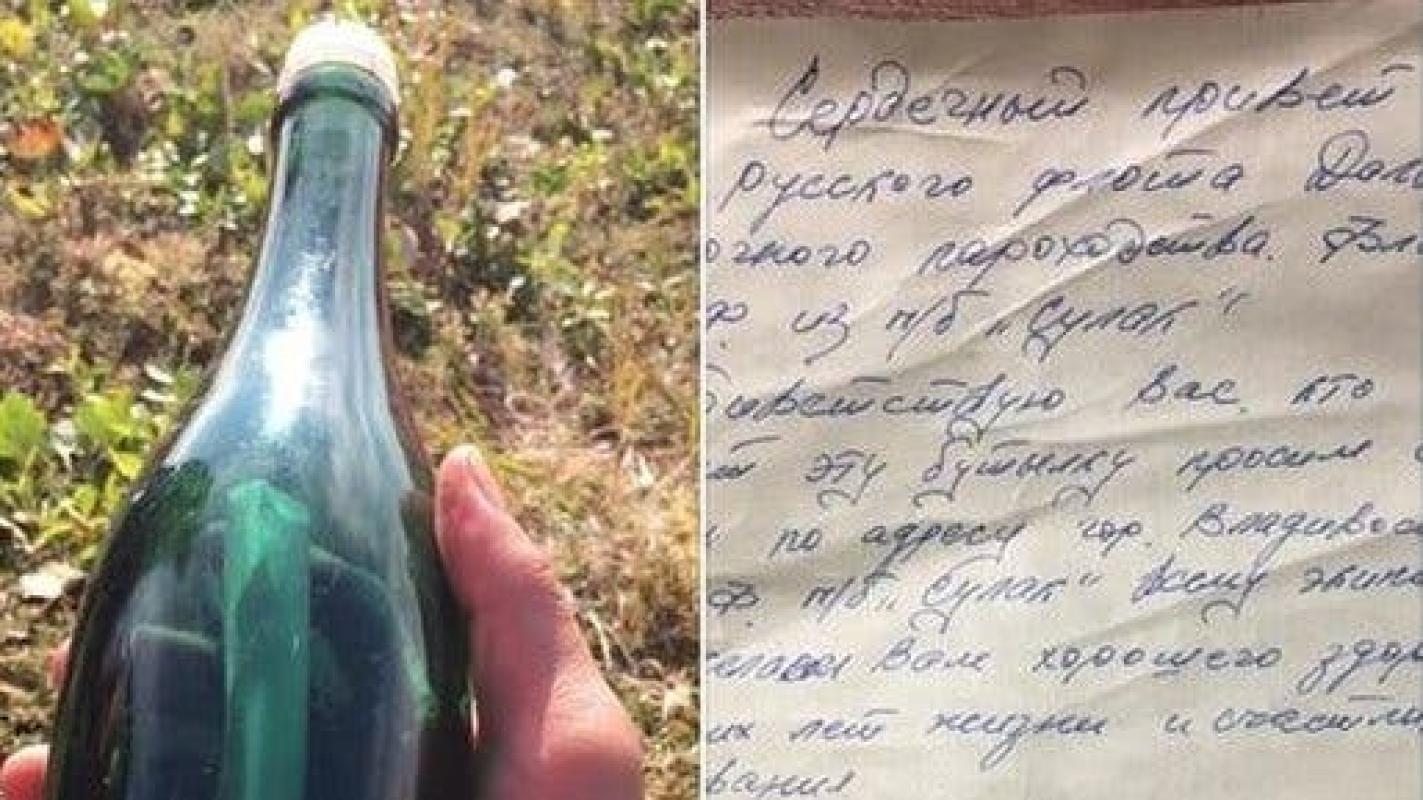 Сердечный привет
Русского флота Дал
очного пароходства.
Ф из п/б „Сулак“
иветствую Вас, кто
ет эту бутылку просим
по адресу гор. Владивос
Ф. п/б „Сулак“ всему экип
елаем Вам хорошего здор
их лет жизни и счастли
вания